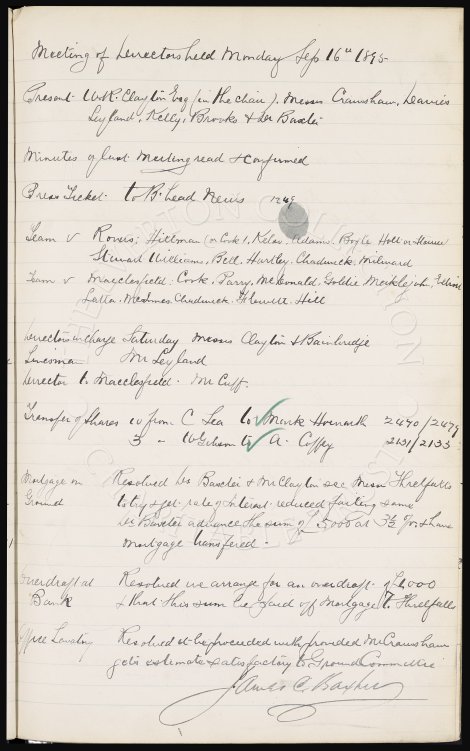 Meeting of Directors held Monday Sep 16th 1895
Present. W.R. Clayton Esq (in the chair). Messrs Cranshaw, Davies
Leyland, Kelly, Brooks & Dr Baxter
Minutes of last Meeting read & confirmed
Press Ticket. to B. head News 1249
Team v Rovers; Hillman (or Cook), Kelso, Adams, Boyle Holt or
Stewart Williams, Bell, Hartley, Chadwick, Milward
Team v Macclesfield. Cook, Parry, McDonald, Goldie, Meiklejohn, Elliott
Latta. McInnes. Chadwick. Flewitt. Hill
Directors in charge Saturday Messrs Clayton & Bainbridge
Linesman Mr Leyland
Director to Macclesfield. Mr Cuff.
Transfer of Shares 10 from C Lea to Mark Howarth 2470/2479
3 " W Gibson to A. Coffey 2131/2133
Mortgage on Resolved Dr Baxter & Mr Clayton see Messrs Threlfalls
Ground to try & get rate of interest reduced failing same
Dr Baxter advance the sum of £5000 at 3½ % & have
Mortgage transferred.
Overdraft at Resolved we arrange for an overdraft of
Bank & that this sum be paid off Mortgage to Threlfalls
Office Lavatory Resolved it be proceeded with provided Mr Cranshaw
gets estimate satisfactory to Ground Committee
James C. Baxter